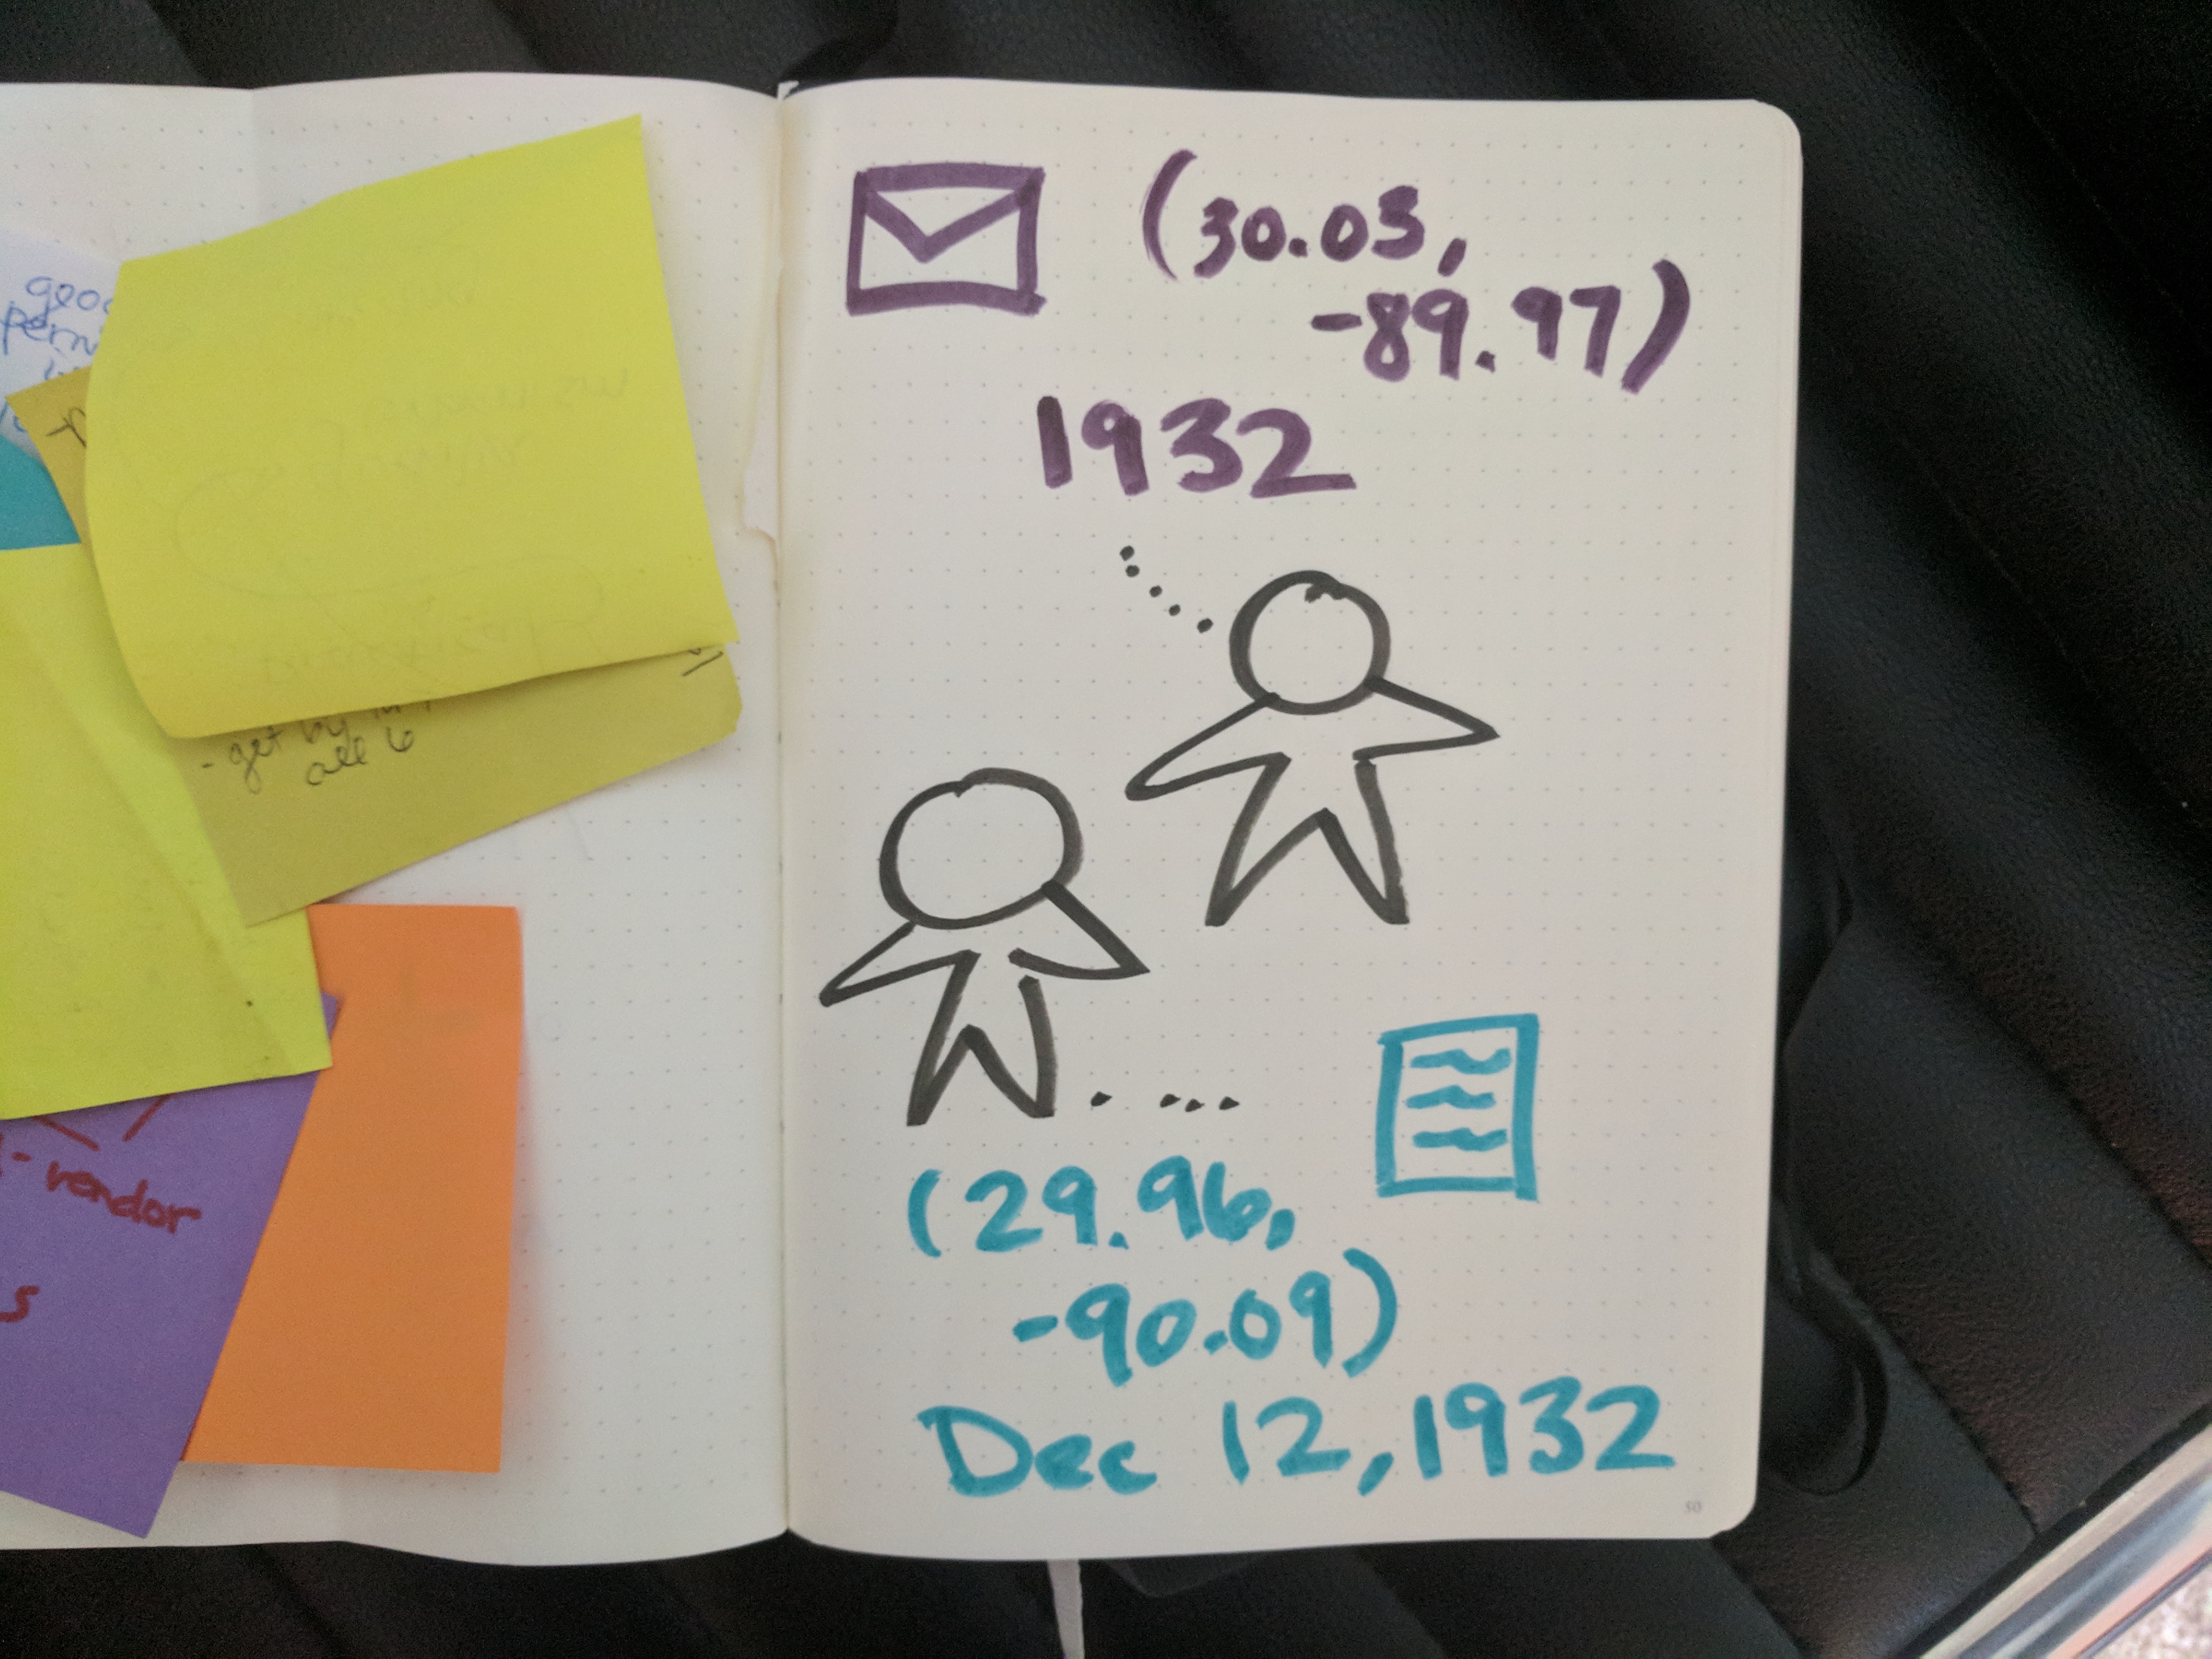 - get by
all 6
- vendor
s
(30.03,
-89.97)
1932
(29.96,
-90.09)
Dec 12, 1932
50